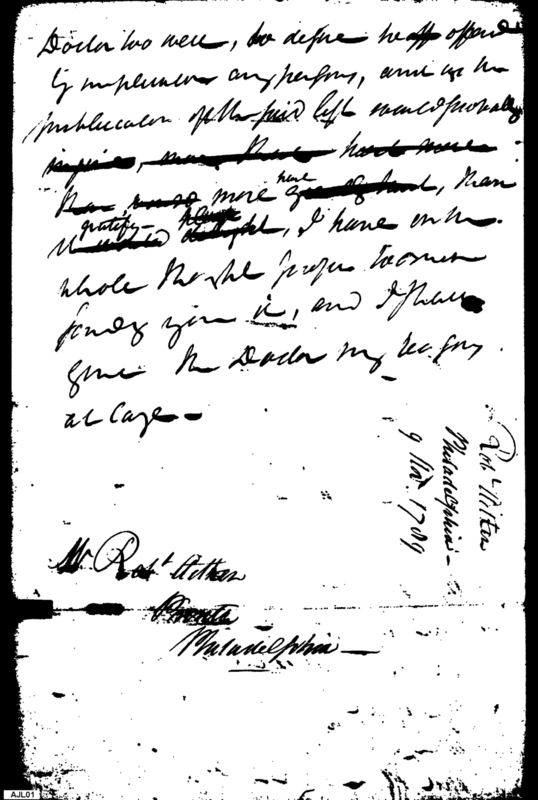 Doctor too well, to desire he offend
by implication any persons, and as the
publication of the said left would probably
more have, than
gratify, I have on the
whole thought proper to omit
sending you it, and I shall
give the Doctor my reasons
at large —
Mr Robt Aitken
Printer
Philadelphia —
Robt Aitken
Philadelphia —
9 Nov. 1789
AJL01